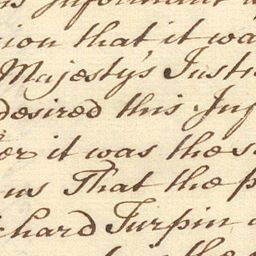 ion that, it wa
Majesty's Justi
desired this Inf
er it was the s
us That the p
chard Turpin